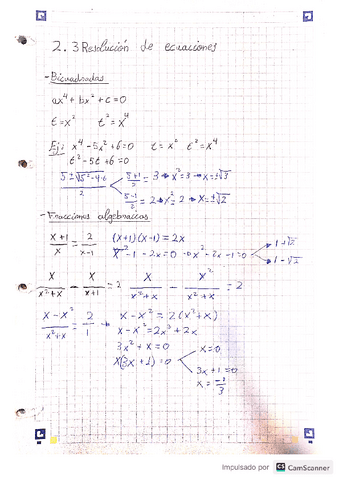 2.3 Resolución de ecuaciones
- Bicuadradas
ax⁴ + bx² + c = 0
t = x²   t² = x⁴
Ej: x⁴ - 5x² + 6 = 0   t = x²   t² = x⁴
t² - 5t + 6 = 0
(5 ± √(5² - 4·6))/2
(5+1)/2 = 3 → x² = 3 → x = ±√3
(5-1)/2 = 2 → x² = 2 → x = ±√2
- Fracciones algebraicas
(x+1)/x = 2/(x-1)   (x+1)(x-1) = 2x
x² - 1 - 2x = 0 → x² - 2x - 1 = 0
1 + √2
1 - √2
x/(x²+x) - x/(x+1) = 2   x/(x²+x) - x²/(x²+x) = 2
(x - x²)/(x²+x) = 2/1 → x - x² = 2(x²+x)
x - x² = 2x² + 2x
3x² + x = 0
x(3x+1) = 0
x = 0
3x + 1 = 0
x = -1/3
Impulsado por CS CamScanner